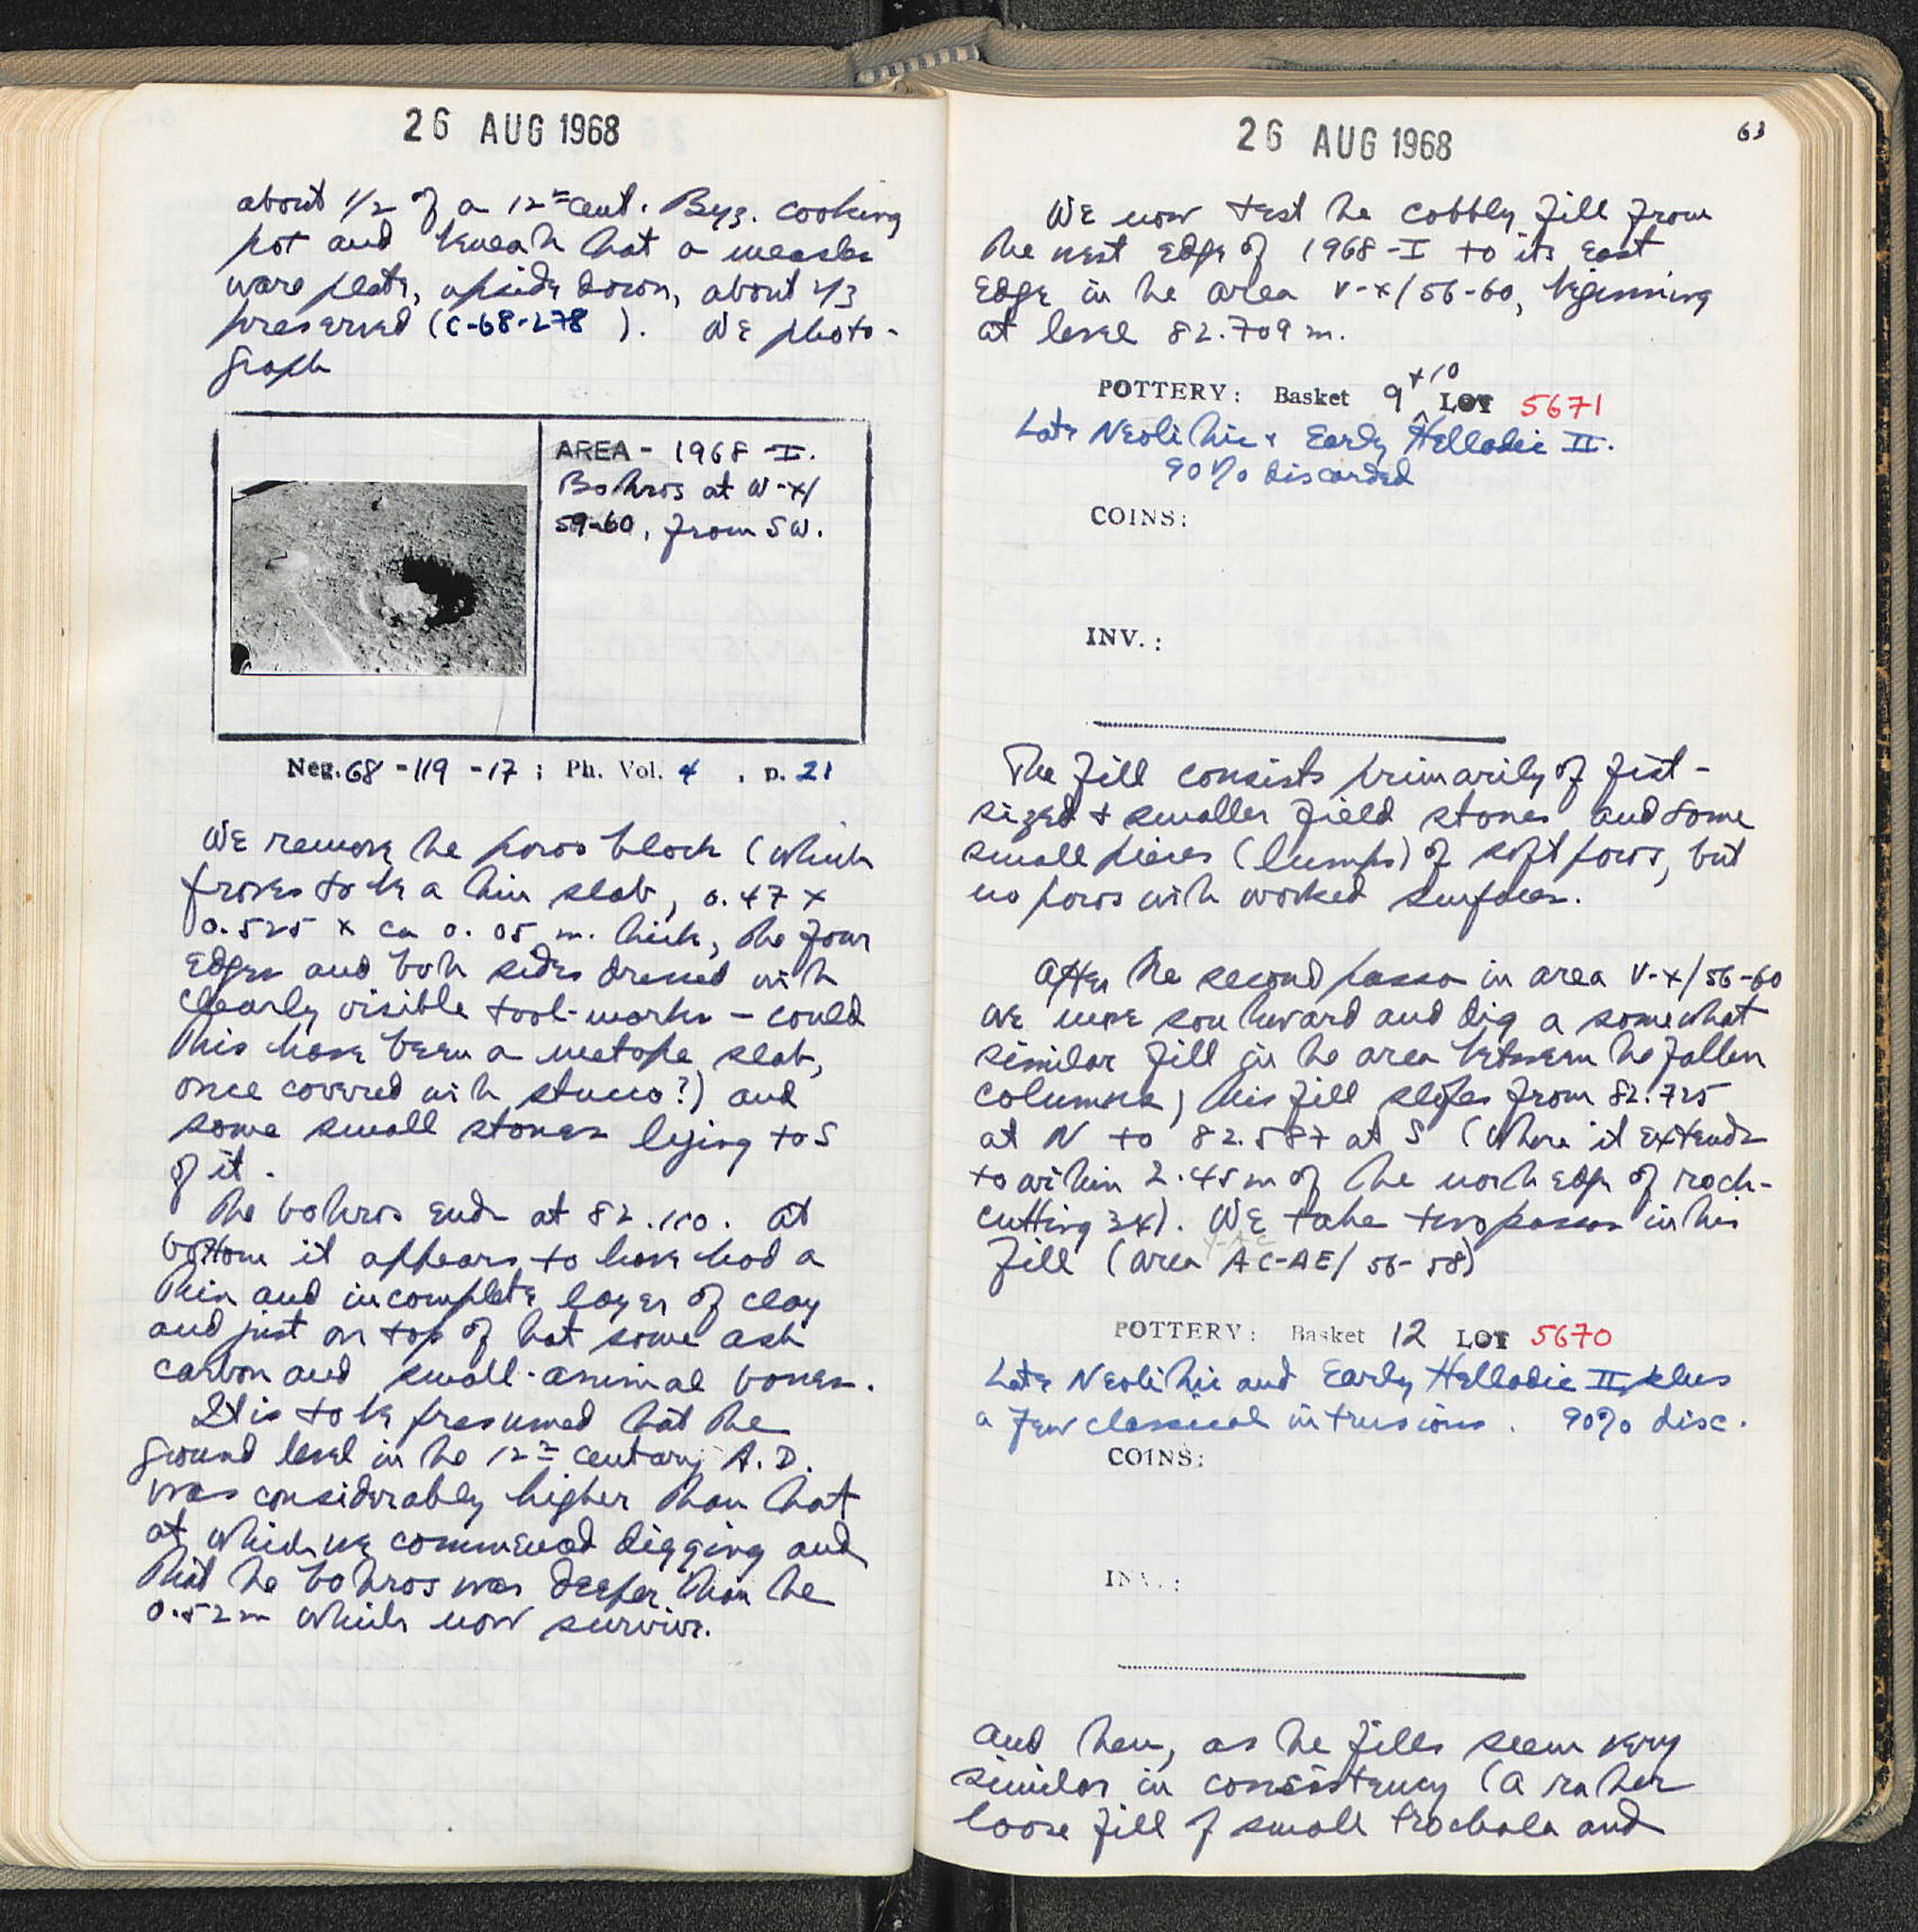 26 AUG 1968
about 1/2 of a 12th cent. Byz. cooking
pot and beneath that a measles
ware plate, upside down, about 1/3
preserved (C-68-278 ). WE photo-
graph
AREA - 1968 - I.
Bothros at W-X/
59-60, from SW.
Neg. 68 - 119 - 17 ; Ph. Vol. 4 , p. 21
WE remove the poros block (which
proves to be a thin slab, 0.47 x
0.525 x ca 0.05 m. thick, the four
edges and both sides dressed with
clearly visible tool-marks – could
this have been a metope slab,
once covered with stucco?) and
some small stones lying to S
of it.
The bothros ends at 82.110. At
bottom it appears to have had a
thin and incomplete layer of clay
and just on top of that some ash
carbon and small-animal bones.
It is to be presumed that the
ground level in the 12th century A.D.
was considerably higher than that
at which we commenced digging and
that the bothros was deeper than the
0.52 m which now survives.
26 AUG 1968
63
WE now test the cobbly fill from
the west edge of 1968-I to its east
edge in the area V-X/56-60, beginning
at level 82.709 m.
POTTERY: Basket 9 + 10 LOT 5671
Late Neolithic + Early Helladic II.
90% discarded
COINS:
INV.:
The fill consists primarily of fist-
sized + smaller field stones and some
small pieces (lumps) of soft poros, but
no poros with worked surfaces.
After the second passo in area V-X/56-60
WE move southward and dig a somewhat
similar fill in the area between the fallen
columns; this fill slopes from 82.725
at N to 82.587 at S (where it extends
to within 2.45 m of the north edge of rock-
cutting 34). WE take two passes in this
fill (area AC-AE/ 56-58)
POTTERY: Basket 12 LOT 5670
Late Neolithic and Early Helladic II plus
a few classical intrusions. 90% disc.
COINS:
INV.:
and then, as the fills seem very
similar in consistency (a rather
loose fill of small trochala and